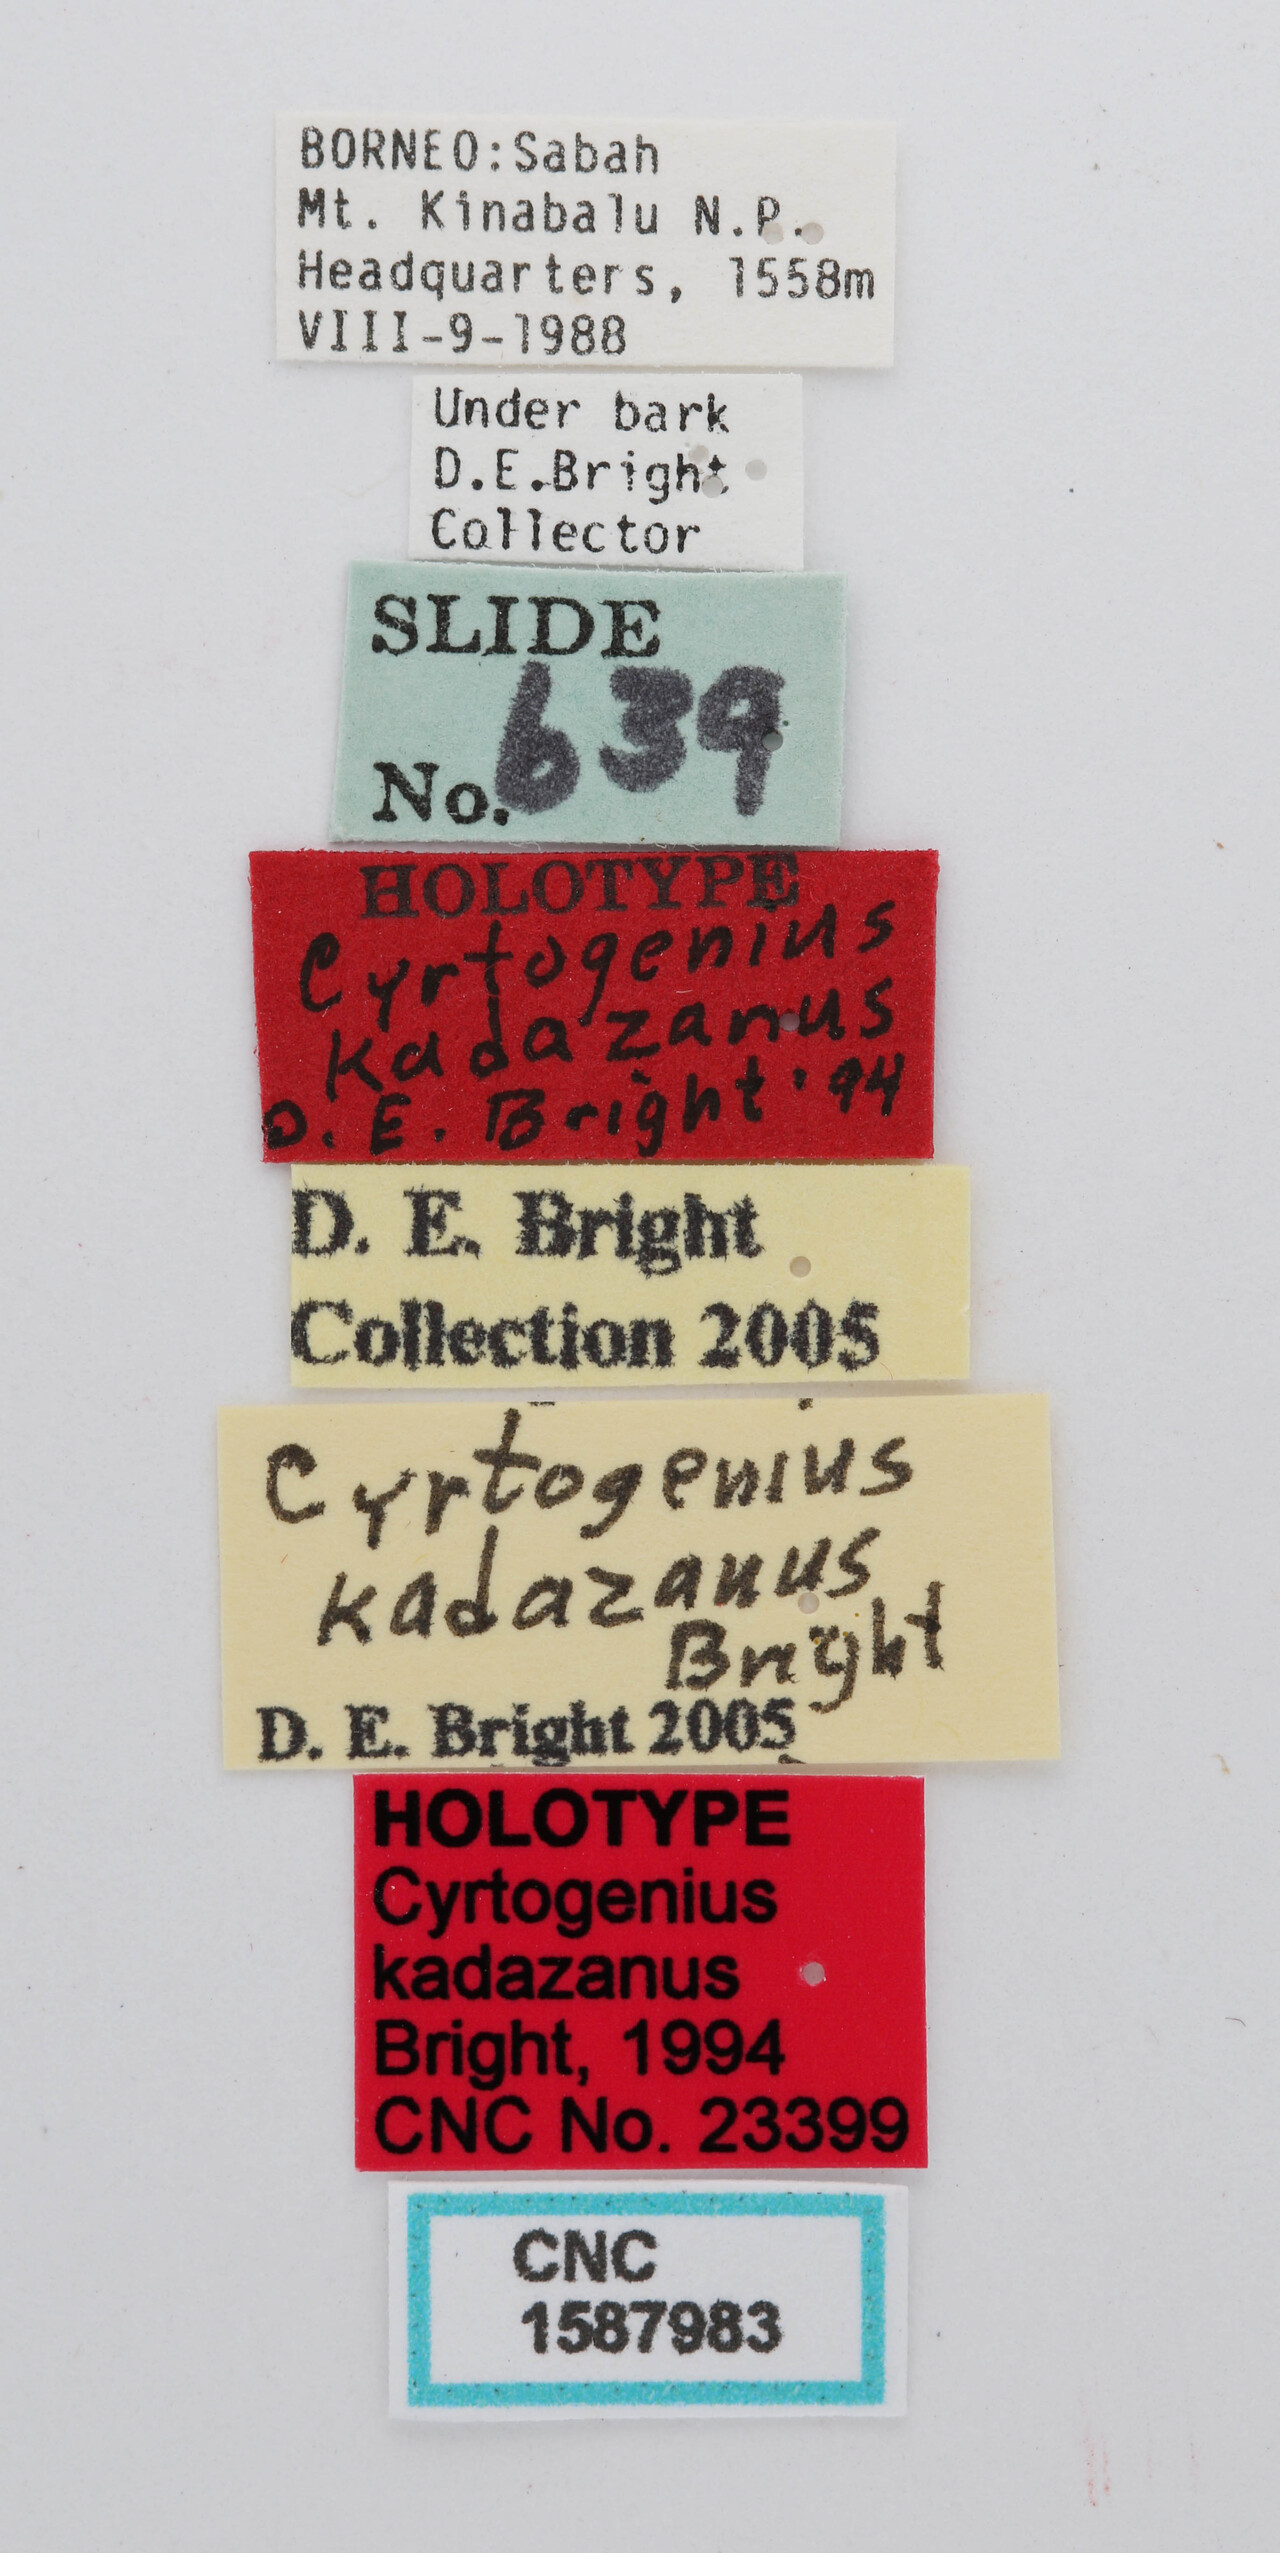 BORNEO:Sabah
Mt. Kinabalu N.P.
Headquarters, 1558m
VIII-9-1988
Under bark
D.E.Bright
Collector
SLIDE
No. 639
HOLOTYPE
Cyrtogenius
kadazanus
D. E. Bright '94
D. E. Bright
Collection 2005
Cyrtogenius
kadazanus
Bright
D. E. Bright 2005
HOLOTYPE
Cyrtogenius
kadazanus
Bright, 1994
CNC No. 23399
CNC
1587983